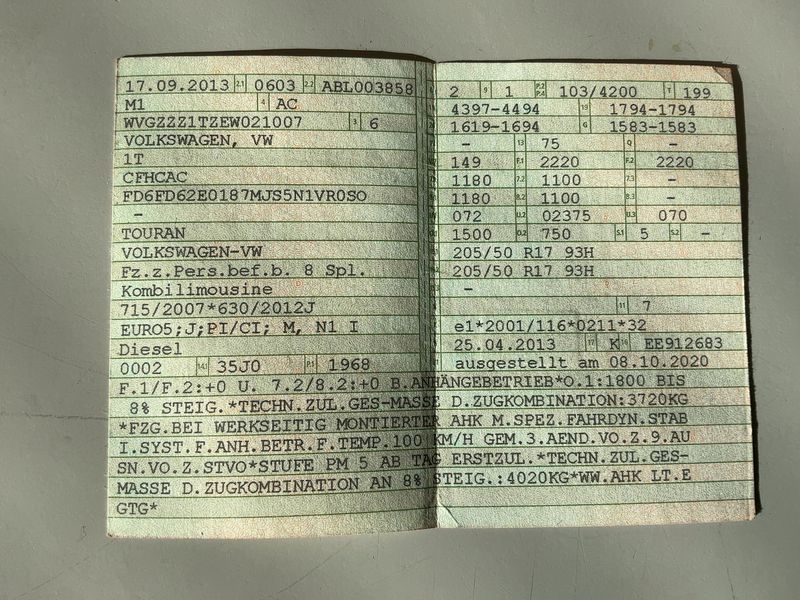 17.09.2013 2.1 0603 2.2 ABL003858
M1 4 AC
WVGZZZ1TZEW021007 3 6
VOLKSWAGEN, VW
1T
CFHCAC
FD6FD62E0187MJS5N1VR0SO
-
TOURAN
VOLKSWAGEN-VW
Fz.z.Pers.bef.b. 8 Spl.
Kombilimousine
715/2007*630/2012J
EURO5;J;PI/CI; M, N1 I
Diesel
0002 14.1 35J0 P.1 1968
2 9 1 P.2 P.4 103/4200 T 199
4397-4494 19 1794-1794
1619-1694 G 1583-1583
- 13 75 Q -
149 F.1 2220 F.2 2220
1180 7.2 1100 7.3 -
1180 8.2 1100 8.3 -
072 U.2 02375 U.3 070
1500 O.2 750 S.1 5 S.2 -
205/50 R17 93H
205/50 R17 93H
-
11 7
e1*2001/116*0211*32
25.04.2013 17 K 16 EE912683
ausgestellt am 08.10.2020
F.1/F.2:+0 U. 7.2/8.2:+0 B.ANHÄNGEBETRIEB*O.1:1800 BIS
8% STEIG.*TECHN.ZUL.GES-MASSE D.ZUGKOMBINATION:3720KG
*FZG.BEI WERKSEITIG MONTIERTER AHK M.SPEZ.FAHRDYN.STAB
I.SYST.F.ANH.BETR.F.TEMP.100 KM/H GEM.3.AEND.VO.Z.9.AU
SN.VO.Z.STVO*STUFE PM 5 AB TAG ERSTZUL.*TECHN.ZUL.GES-
MASSE D.ZUGKOMBINATION AN 8% STEIG.:4020KG*WW.AHK LT.E
GTG*